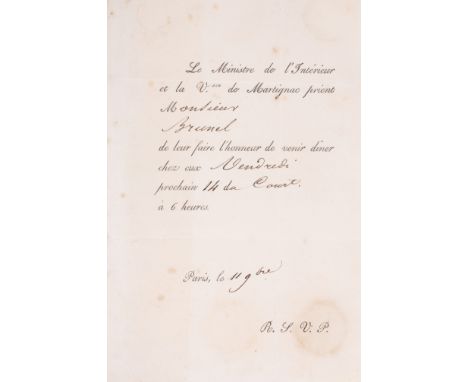 Le Ministre de l'Intérieur
et la V.sse de Martignac prient
Monsieur
Brunel
de leur faire l'honneur de venir dîner
chez eux Vendredi
prochain 14 du Cour.t
à 6 heures.
Paris, le 11 9bre
R. S. V. P.